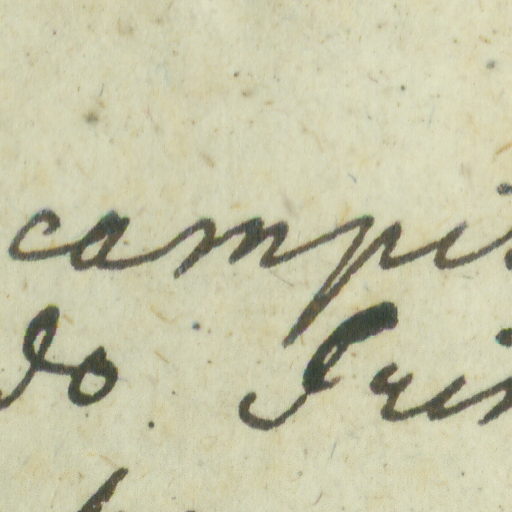 campi
do. Prin